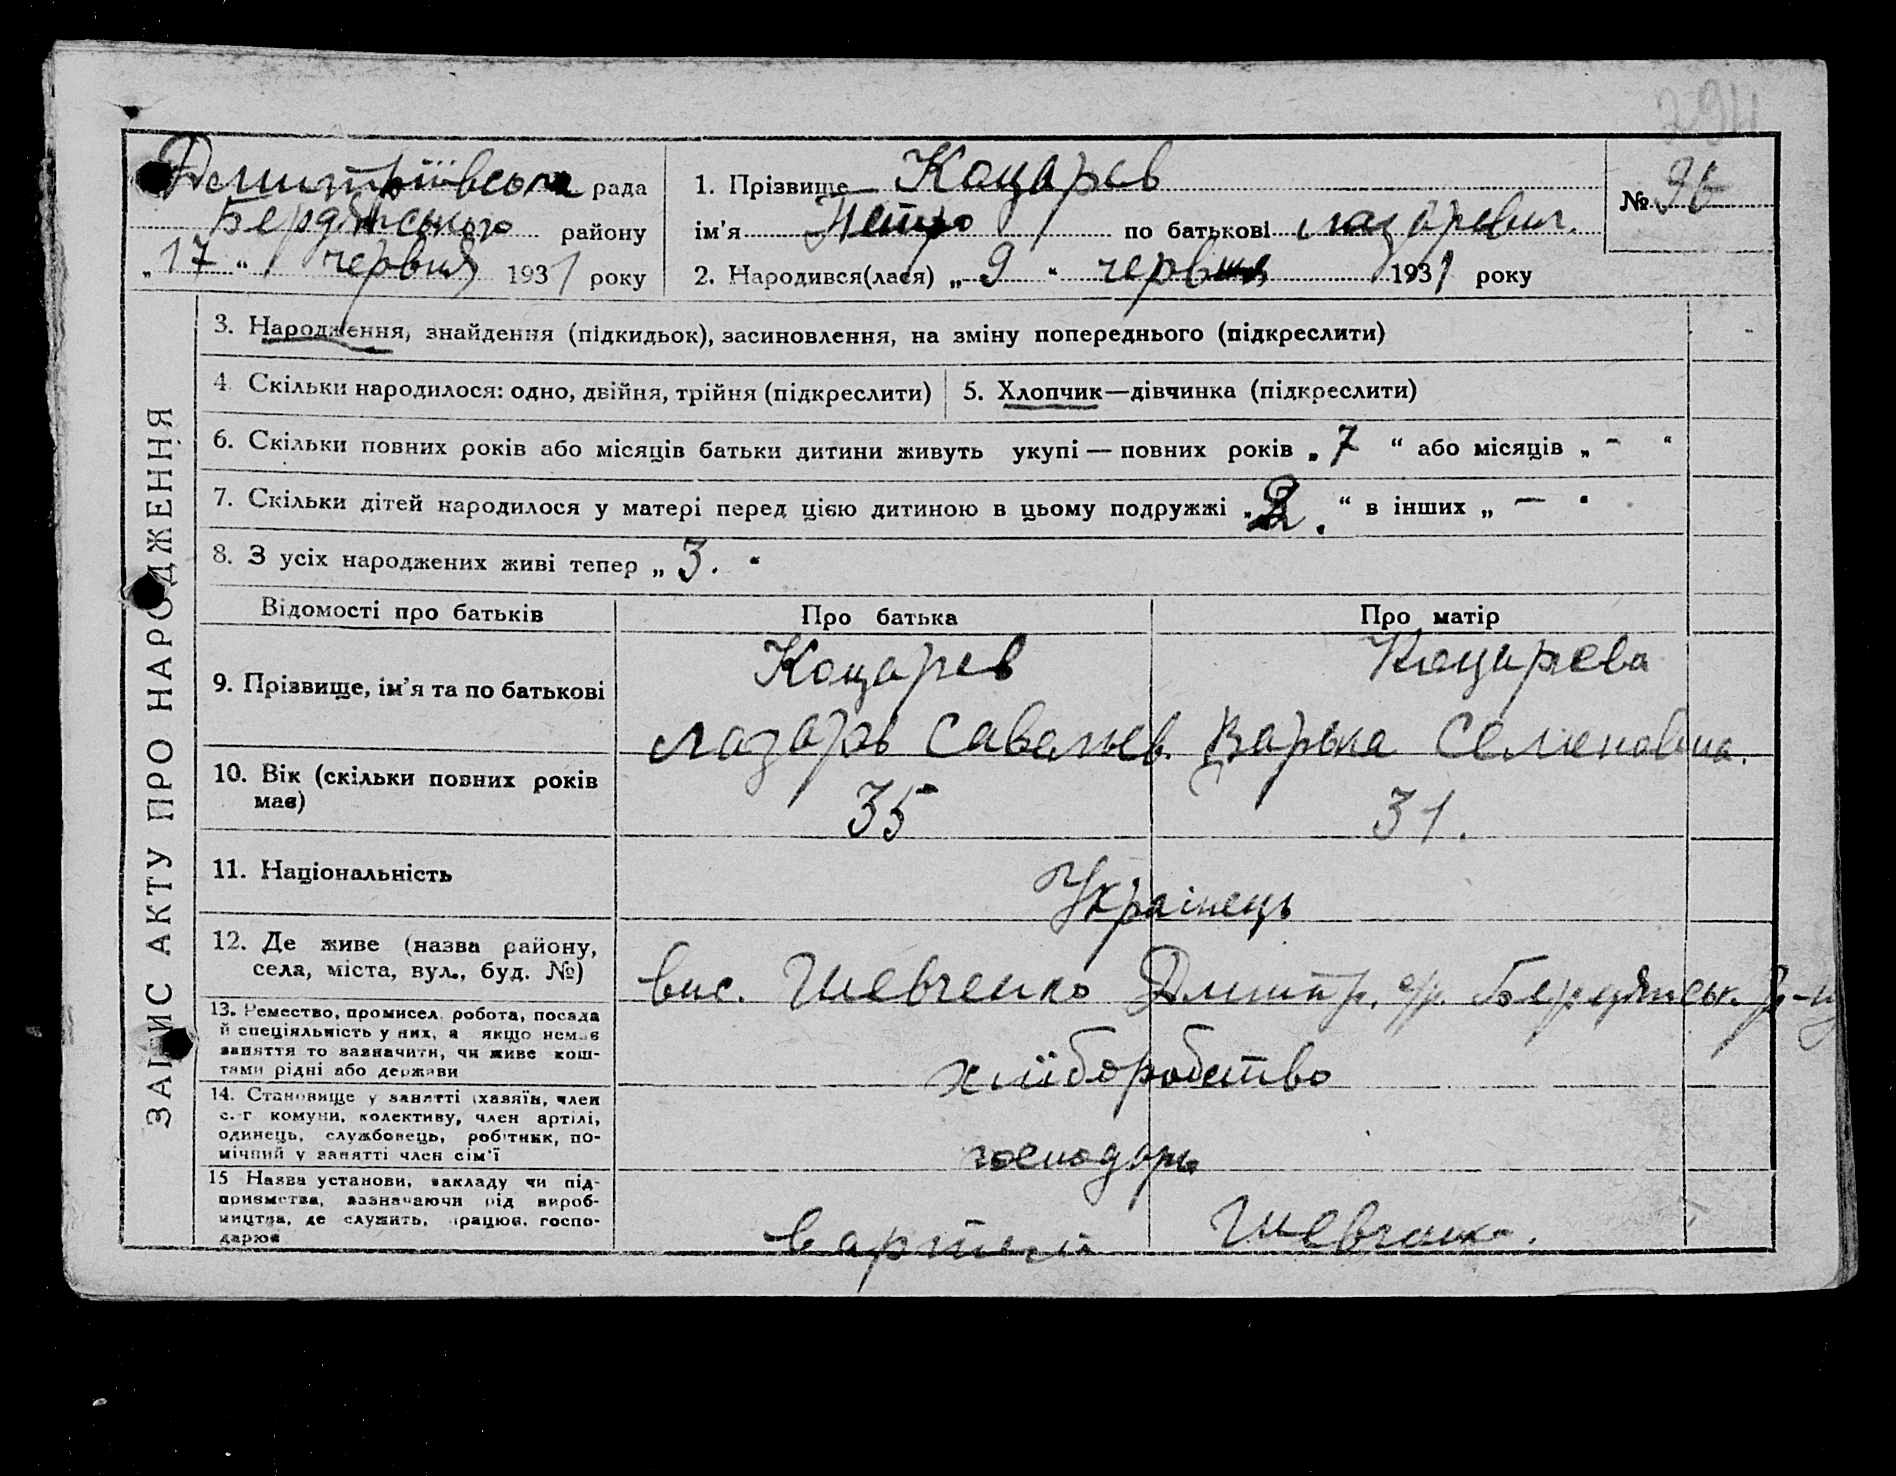 294
Дмитріївська рада
Бердянського району
„17“ червня 1931 року
1. Прізвище Коцарев
ім'я Петро по батькові Лазаревич.
2. Народився(лася) „9“ червня 1931 року
№ 36
ЗАПИС АКТУ ПРО НАРОДЖЕННЯ
3. Народження, знайдення (підкидьок), засиновлення, на зміну попереднього (підкреслити)
4. Скільки народилося: одно, двійня, трійня (підкреслити)
5. Хлопчик—дівчинка (підкреслити)
6. Скільки повних років або місяців батьки дитини живуть укупі — повних років „7“ або місяців „-“
7. Скільки дітей народилося у матері перед цією дитиною в цьому подружжі „2.“ в інших „—“
8. З усіх народжених живі тепер „3.“
Відомості про батьків
Про батька
Про матір
9. Прізвище, ім'я та по батькові
Коцарев
Лазарь Савельев.
Коцарева
Варька Семеновна.
10. Вік (скільки повних років
має)
35
31.
11. Національність
Українець
12. Де живе (назва району,
села, міста, вул., буд. №)
вис. Шевченко Дмитр. с/р. Бердянськ. р-ну
13. Ремество, промисел, робота, посада
й спеціяльність у них, а якщо немає
заняття то зазначити, чи живе кош-
тами рідні або держави
хліборобство
14. Становище у занятті (хазяїн, член
с.-г комуни, колективу, член артілі,
одинець, службовець, робітник, по-
мічний у занятті член сім'ї
господарь
15 Назва установи, закладу чи під-
приємства, зазначаючи рід вироб-
ництва, де служить, працює, госпо-
дарює
в артелі Шевченк.